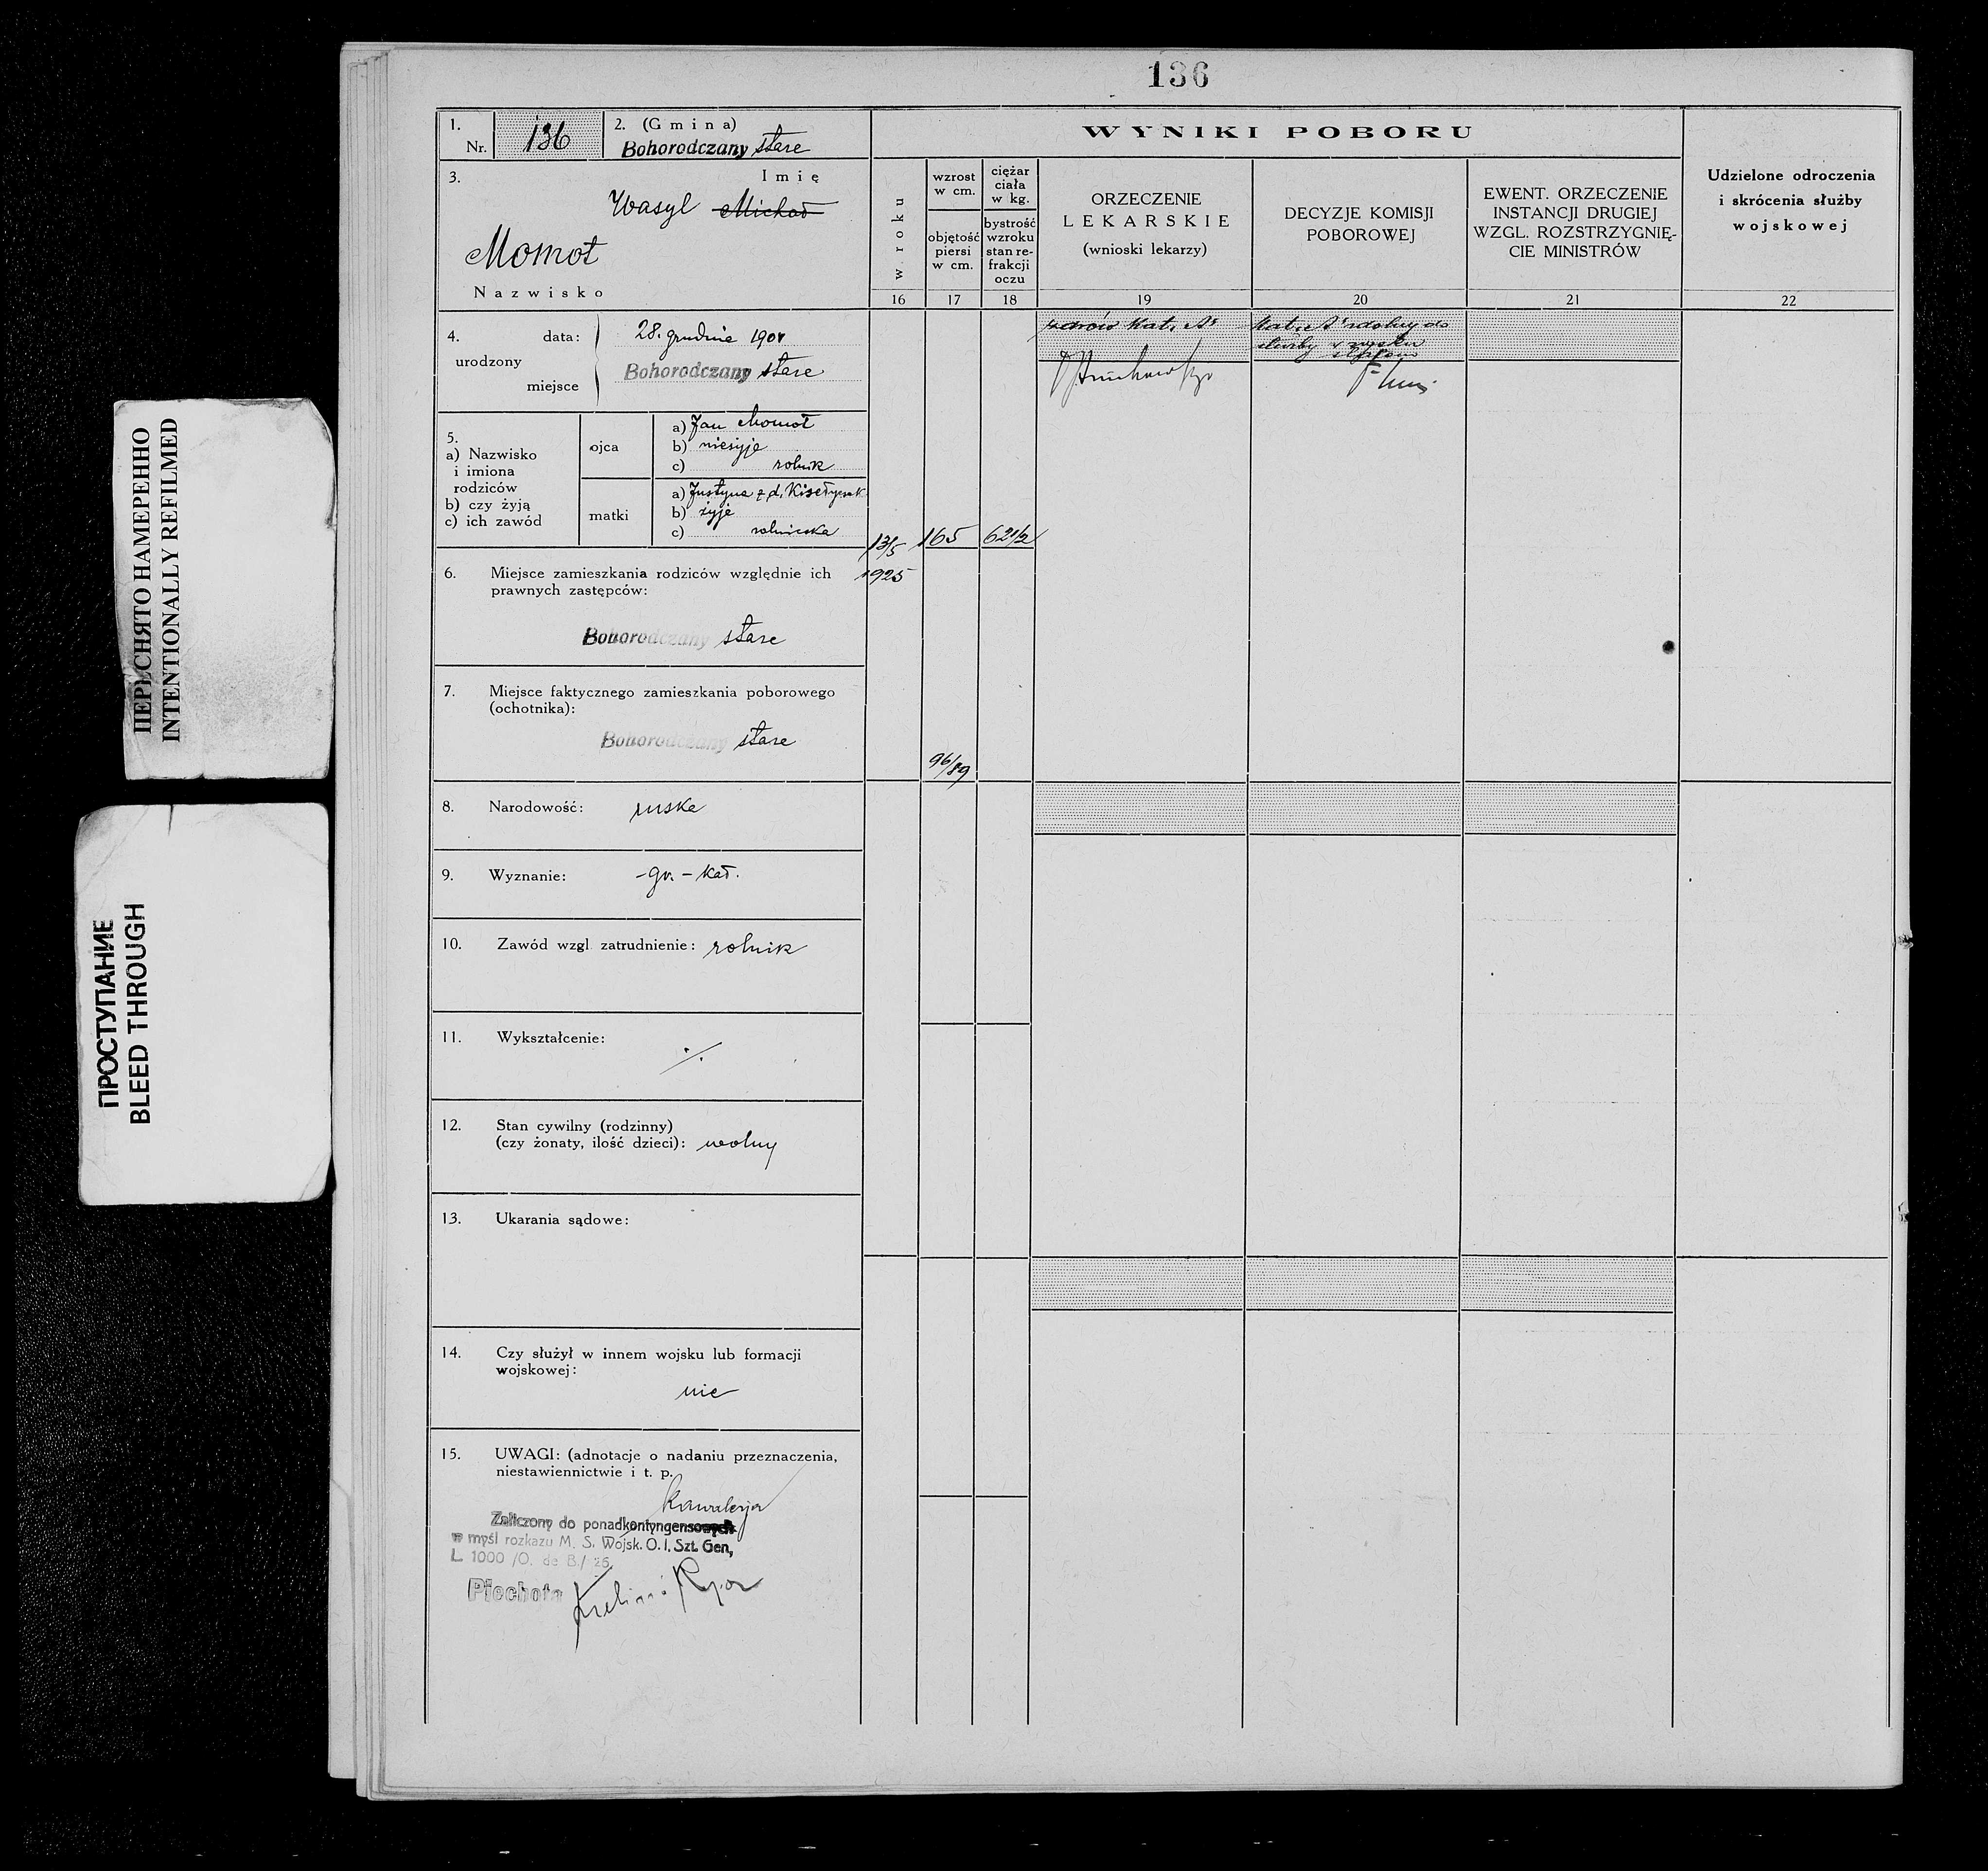 136
1.
Nr. 136
2. (Gmina)
Bohorodczany stare
3.
Imię
Wasyl Michał
Momot
Nazwisko
4.
urodzony
data: 28. grudnia 1904
miejsce Bohorodczany stare
5.
a) Nazwisko
i imiona
rodziców
b) czy żyją
c) ich zawód
ojca
a) Jan Momot
b) nieżyje
c) rolnik
matki
a) Justyna z d.
b) żyje
c) rolniczka
6. Miejsce zamieszkania rodziców względnie ich
prawnych zastępców:
Bohorodczany stare
7. Miejsce faktycznego zamieszkania poborowego
(ochotnika):
Bohorodczany stare
8. Narodowość: ruska
9. Wyznanie: -gr.-kat.
10. Zawód wzgl. zatrudnienie: rolnik
11. Wykształcenie:
./.
12. Stan cywilny (rodzinny)
(czy żonaty, ilość dzieci): wolny
13. Ukarania sądowe:
14. Czy służył w innem wojsku lub formacji
wojskowej:
nie
15. UWAGI: (adnotacje o nadaniu przeznaczenia,
niestawiennictwie i t. p.
Kawalerja
Zaliczony do ponadkontyngensowych
w myśl rozkazu M. S. Wojsk. O. I. Szt. Gen,
L. 1000 /O. de B./ 25
Piechota
WYNIKI POBORU
w roku
wzrost
w cm.
objętość
piersi
w cm.
ciężar
ciała
w kg.
bystrość
wzroku
stan re-
frakcji
oczu
ORZECZENIE
LEKARSKIE
(wnioski lekarzy)
DECYZJE KOMISJI
POBOROWEJ
EWENT. ORZECZENIE
INSTANCJI DRUGIEJ
WZGL. ROZSTRZYGNIĘ-
CIE MINISTRÓW
Udzielone odroczenia
i skrócenia służby
wojskowej
16 17 18 19 20 21 22
zdrów Kat. A
Kat. A zdolny do
służby
13/5 165 62 1/2
1925
96/89
ПЕРЕСНЯТО НАМЕРЕННО
INTENTIONALLY REFILMED
ПРОСТУПАНИЕ
BLEED THROUGH